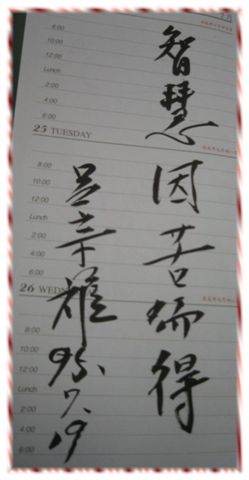 智慧
因苦而得
呂幸雄
95.7.19
8:00
10:00
12:00
Lunch
2:00
4:00
6:00
25 TUESDAY
8:00
10:00
12:00
Lunch
2:00
4:00
6:00
26 WEDN
8:00
10:00
12:00
Lunch
2:00
4:00
6:00